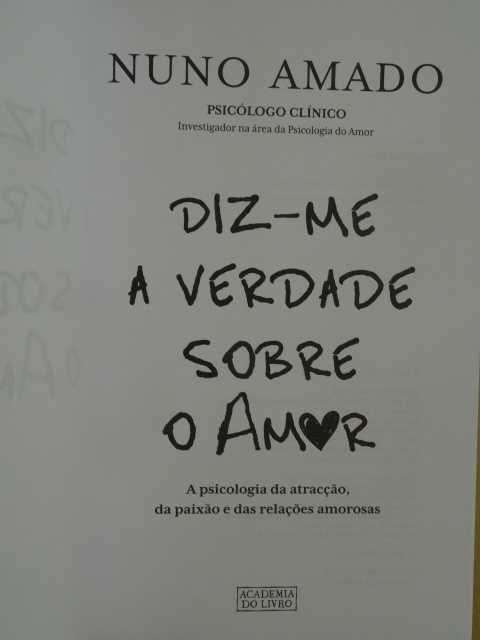 NUNO AMADO
PSICÓLOGO CLÍNICO
Investigador na área da Psicologia do Amor
DIZ-ME
A VERDADE
SOBRE
O AMOR
A psicologia da atracção,
da paixão e das relações amorosas
ACADEMIA
DO LIVRO